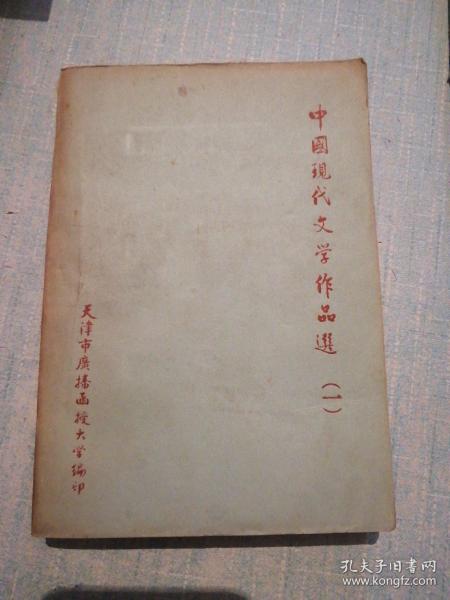 中國現代文学作品選（一）
天津市廣播函授大学编印
孔夫子旧书网
www.kongfz.com